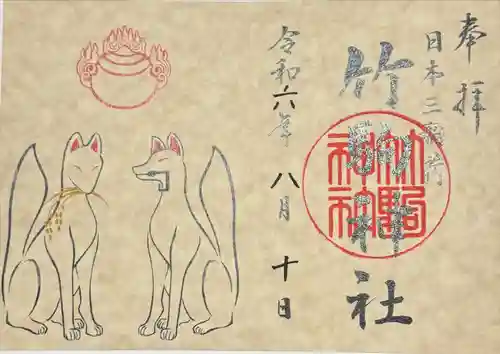 奉拝
日本三稲荷
竹駒神社
令和六年 八月 十日
竹駒神社